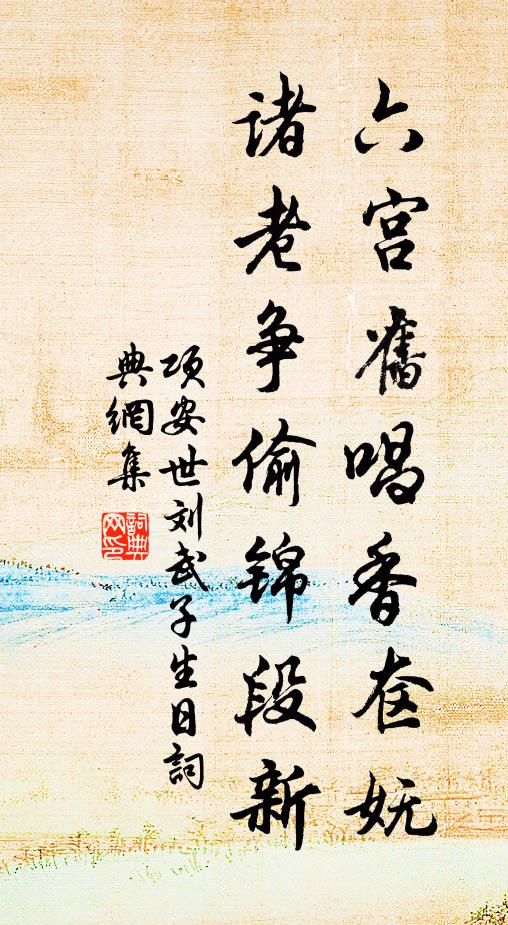 六宫舊唱香奁妩
诸老争偷锦段新
项安世刘武子生日詞
典網集
詞典网印